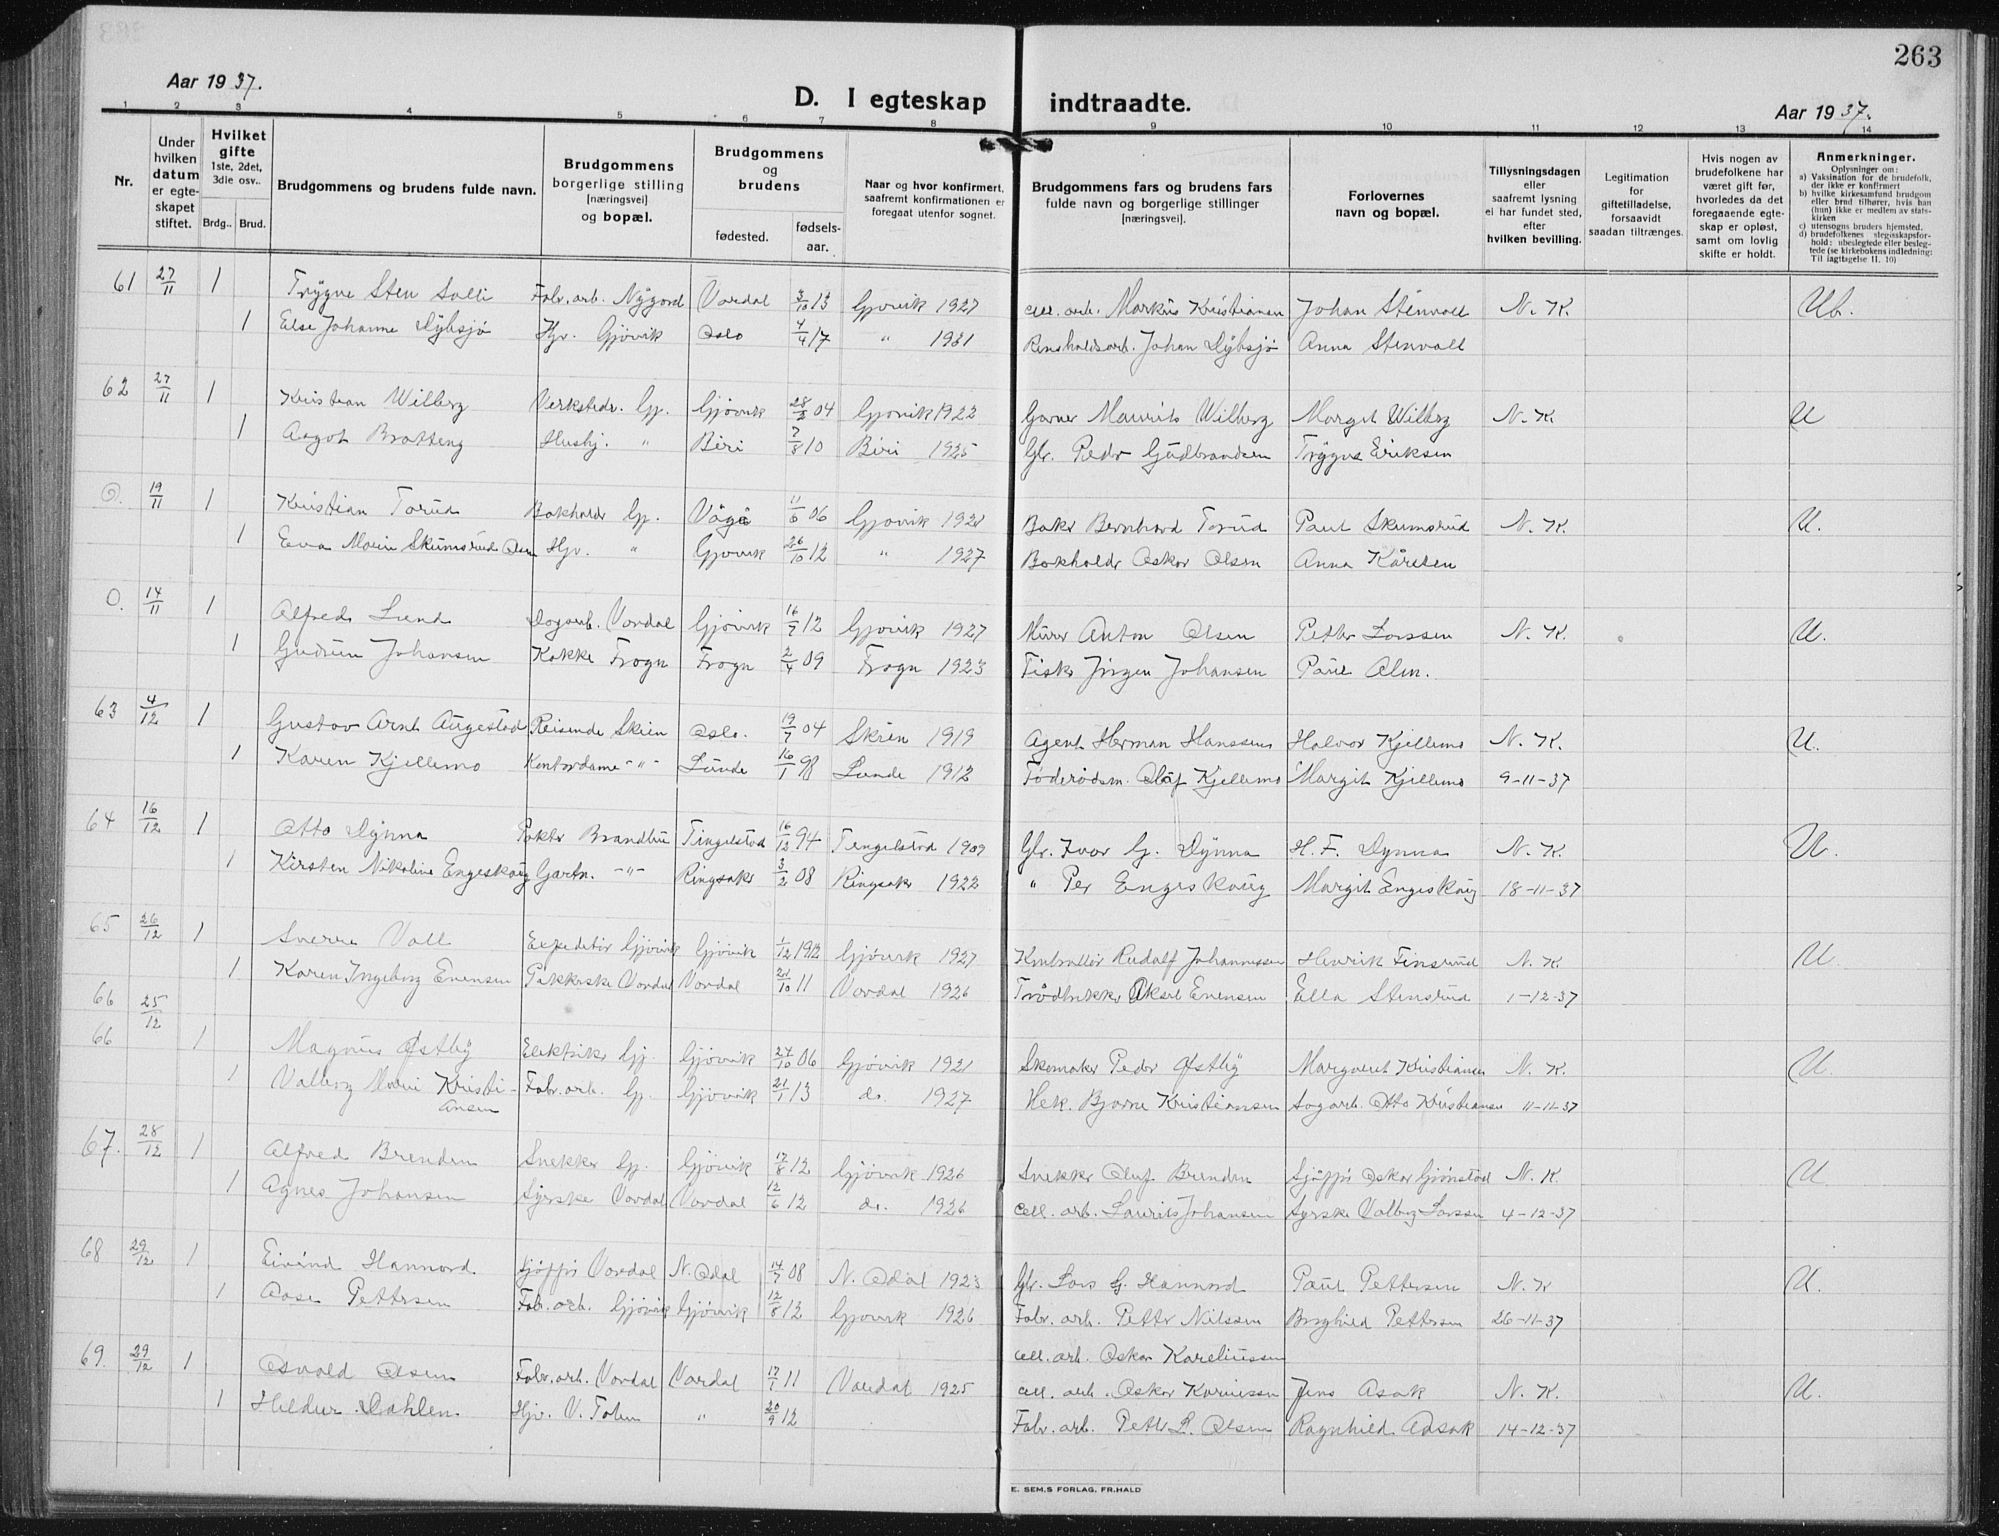 263
Aar 1937.
D. I egteskap indtraadte.
Aar 1937.
1 2 3 4 5 6 7 8 9 10 11 12 13 14
Nr.
Under hvilken datum er egteskapet stiftet.
Hvilket gifte 1ste, 2det, 3die osv..
Brdg.. Brud.
Brudgommens og brudens fulde navn.
Brudgommens borgerlige stilling [næringsvei] og bopæl.
Brudgommens og brudens
fødested. fødselsaar.
Naar og hvor konfirmert, saafremt konfirmationen er foregaat utenfor sognet.
Brudgommens fars og brudens fars fulde navn og borgerlige stillinger [næringsvei].
Forlovernes navn og bopæl.
Tillysningsdagen eller saafremt lysning ei har fundet sted, efter hvilken bevilling.
Legitimation for giftetilladelse, forsaavidt saadan tiltrænges.
Hvis nogen av brudefolkene har været gift før, hvorledes da det foregaaende egteskap er opløst, samt om lovlig skifte er holdt.
Anmerkninger.
Oplysninger om:
a) Vaksination for de brudefolk, der ikke er konfirmert
b) hvilke kirkesamfund brudgom eller brud tilhører, hvis han (hun) ikke er medlem av statskirken
c) utensogns bruders hjemsted.
d) brudefolkenes slegtskapsforhold: ubeslegtede eller beslegtede (se kirkebokens indledning: Til iagttagelse 11. 10)
61 27/11 1 Trygve Sten Solli Fabr.arb. Nygard Vardal 3/10 13 Gjøvik 1927 cell. arb. Markus Kristiansen Johan Stenvall N. K. Ub.
1 Else Johanne Dybsjø Hjv. Gjøvik Oslo 4/4 17 " 1931 Renholdsarb. Johan Dybsjø Anna Stenvall
62 27/11 1 Kristian Wilberg Verkstedr. Gj. Gjøvik 28/2 04 Gjøvik 1922 Garver Mauritz Wilberg Margit Wilberg N. K. U
1 Aagot Bratteng Husbj. " Biri 7/8 10 Biri 1925 Gbr. Peder Gudbrandsen Trygve Eriksen
0. 19/11 1 Kristian Torud Bokholdr Gj. Vågå 11/6 06 Gjøvik 1921 Baker Bernhard Torud Paul Skumsrud N. K. U.
1 Eva Marie Skumsrud Olsen Hjv. " Gjøvik 26/10 12 " 1927 Bokholdr Oskar Olsen Anna Karlsen
0. 14/11 1 Alfred Lund Dagarb. Vardal Gjøvik 16/7 12 Gjøvik 1927 Murer Anton Olsen Petter Larssen N. K. U.
1 Gudrun Johansen Kokke Frogn Frogn 2/4 09 Frogn 1923 Fisker Jørgen Johansen Paul Alm.
63 4/12 1 Gustav Arnt Augestad Reisende Skien Oslo. 19/7 04 Skien 1919 Agent Herman Hanssen Halvor Kjellemo N. K. U.
1 Karen Kjellemo Kontordame -"- Lunde 16/1 98 Lunde 1912 Føderådsm. Olaf Kjellemo Margit Kjellemo 9-11-37
64 16/12 1 Otto Dynna Pakter Brandbu Tingelstad 16/12 94 Tingelstad 1909 Gbr. Ivar G. Dynna H. F. Dynna N. K. U.
1 Kirsten Nikoline Engeskaug Gartn. -"- Ringsaker 3/2 08 Ringsaker 1922 " Per Engeskaug Margit Engeskaug 18-11-37
65 26/12 1 Sverre Vall Expeditør Gjøvik Gjøvik 1/12 1912 Gjøvik 1927 Kontrollør Rudolf Johannessen Henrik Finsrud N. K. U.
1 Karen Ingeborg Evensen Pakkerske Vardal Vardal 21/10 11 Vardal 1926 Trådtrekker Aksel Evensen Ella Stensrud 1-12-37
66 25/12
66 1 Magnus Østby Elektriker Gj. Gjøvik 24/10 06 Gjøvik 1921 Skomaker Peder Østby Margaret Kristiansen N. K. U.
1 Valborg Marie Kristiansen Fabr.arb. Gj. Gjøvik 21/1 13 do. 1927 Hek. Bjarne Kristiansen Sagarb. Otto Kristiansen 11-11-37
67. 28/12 1 Alfred Brenden Snekker Gj. Gjøvik 17/8 12 Gjøvik 1926 Snekker Oluf Brenden Sjåffør Oskar Grønstad N. K. U.
1 Agnes Johansen Syerske Vardal Vardal 12/6 12 do. 1926 cell. arb. Laurits Johansen Syerske Valborg Larssen 4-12-37
68 29/12 1 Eivind Hannord Sjåffør Vardal N. Odal 14/7 08 N. Odal 1923 Gbr. Lars G. Hannord Paul Pettersen N. K U.
1 Aase Pettersen Fabr. arb. Gjøvik Gjøvik 12/8 12 Gjøvik 1926 Fabr. arb. Petter Nilssen Borghild Pettersen 26-11-37
cell. arb. Oskar Kareliussen
69. 29/12 1 Osvald Olsen Fabr.arb. Vardal Vardal 17/1 11 Vardal 1925 cell. arb. Oskar Jens Aasak N. K. U.
1 Heldur Dahlen Hjv. V. Toten " 20/9 12 Fabr. arb. Petter L. Olsen Ragnhild Aasak 14-12-37
E. SEM.S FORLAG. FR.HALD